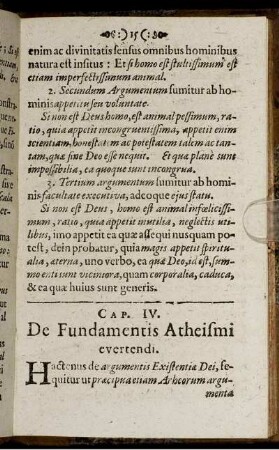 ☙:)15(:❧
enim ac divinitatis sensus omnibus hominibus
natura est insitus: Et si homo est stultissimum est
etiam imperfectissimum animal.
2. Secundum Argumentum sumitur ab ho-
minis appetitu seu voluntate.
Si non est Deus homo, est animal pessimum, ra-
tio, quia appetit incongruentissima, appetit enim
scientiam, honestatem ac potestatem talem ac tan-
tam, quæ sine Deo esse nequit. Et qua planè sunt
impossibilia, ea quoque sunt incongrua.
3. Tertium argumentum sumitur ab homi-
nis facultate executiva, adeoque ejus statu.
Si non est Deus, homo est animal infœlicissi-
mum, ratio, quia appetit inutilia, neglectis uti-
libus, imo appetit ea quæ assequi nusquam po-
test, dein probatur, quia magis appetit spiritu-
alia, æterna, uno verbo, ea quæ Deo, id est, sum-
mo enti sunt viciniora, quam corporalia, caduca,
& ea quæ huius sunt generis.
CAP. IV.
De Fundamentis Atheismi
evertendi.
Hactenus de argumentis Existentiæ Dei, se-
quitur ut præcipua etiam Atheorum argu-
menta